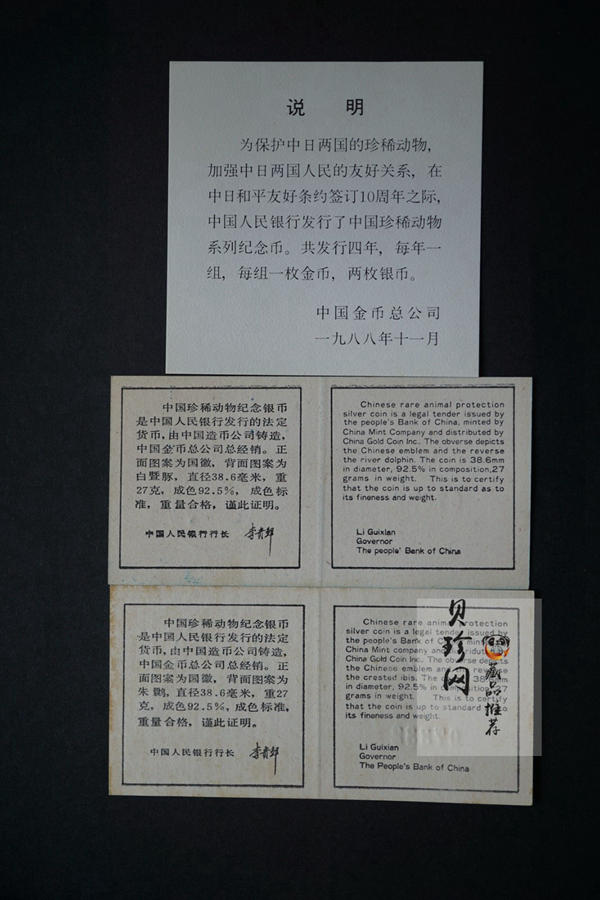 说 明
为保护中日两国的珍稀动物,
加强中日两国人民的友好关系, 在
中日和平友好条约签订10周年之际,
中国人民银行发行了中国珍稀动物
系列纪念币。共发行四年, 每年一
组, 每组一枚金币, 两枚银币。
中国金币总公司
一九八八年十一月
中国珍稀动物纪念银币
是中国人民银行发行的法定
货币,由中国造币公司铸造,
中国金币总公司总经销。正
面图案为国徽, 背面图案为
白暨豚, 直径38.6毫米, 重
27克, 成色92.5%, 成色标
准, 重量合格, 谨此证明。
中国人民银行行长 李贵鲜
Chinese rare animal protection
silver coin is a legal tender issued by
the people's Bank of China, minted by
China Mint Company and distributed by
China Gold Coin Inc. The obverse depicts
the Chinese emblem and the reverse
the river dolphin. The coin is 38.6mm
in diameter, 92.5% in composition,27
grams in weight. This is to certify
that the coin is up to standard as to
its fineness and weight.
Li Guixian
Governor
The people' Bank of China
中国珍稀动物纪念银币
是中国人民银行发行的法定
货币, 由中国造币公司铸造,
中国金币总公司总经销。正
面图案为国徽, 背面图案为
朱鹮, 直径38.6毫米, 重27
克, 成色92.5%, 成色标准,
重量合格, 谨此证明。
中国人民银行行长 李贵鲜
Chinese rare animal protection
silver coin is a legal tender issued by
the people's Bank of China, minted by
China Mint company and distributed by
China Gold Coin Inc. The obverse depicts
the Chinese emblem and the reverse
the crested ibis. The coin is 38.6mm
in diameter, 92.5% in composition,27
grams in weight. This is to certify
that the coin is up to standard as to
its fineness and weight.
Li Guixian
Governor
The People's Bank of China
贝珍网
藏品推荐